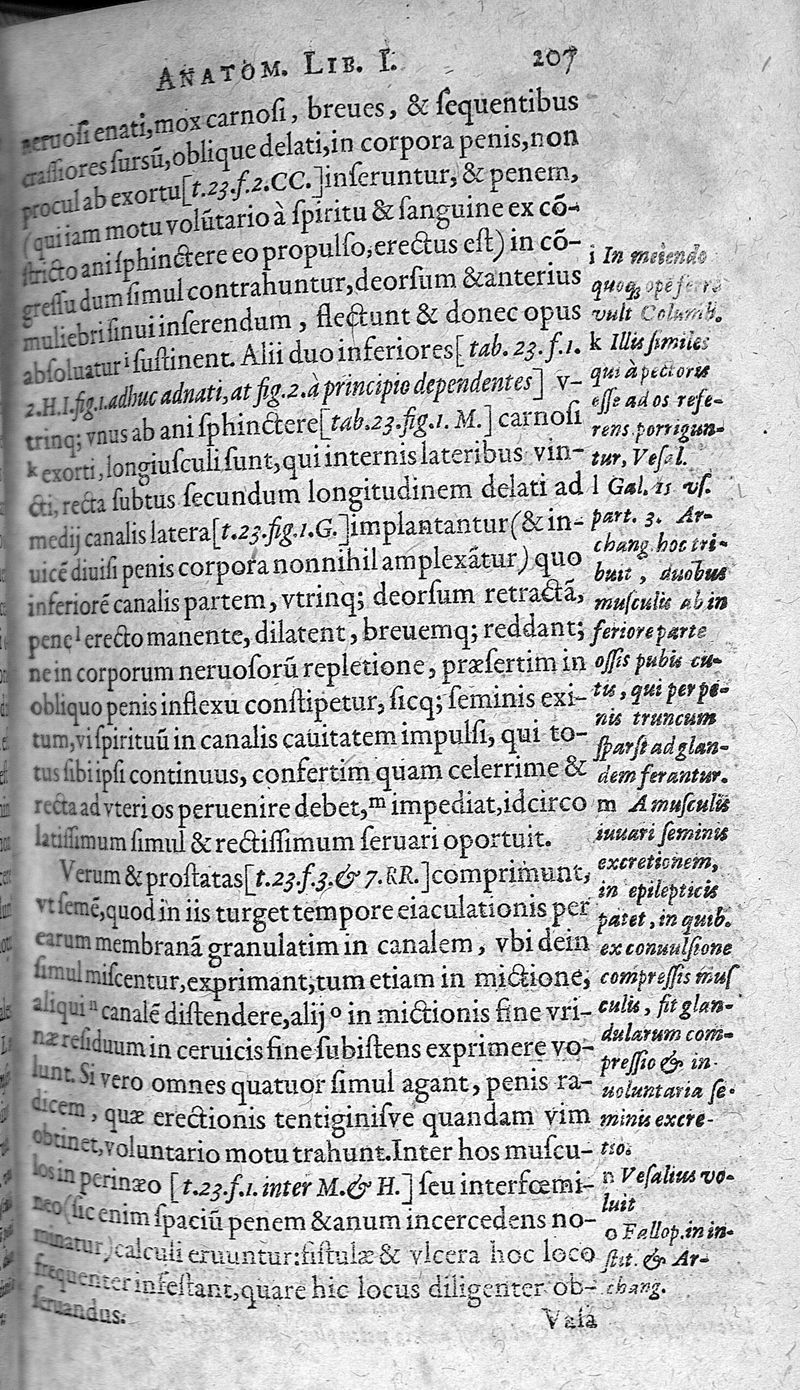 ANATOM. LIB. I. 207
neruoſi enati, mox carnoſi, breues, & ſequentibus
craſſiores ſursũ, oblique delati, in corpora penis, non
procul ab exortu [t.23.f.2.CC.] inſeruntur, & penem,
(qui iam motu volũtario à ſpiritu & ſanguine ex cõ-
ſtricto ani ſphinctere eo propulſo, erectus eſt) in cõ-
greſſu dum ſimul contrahuntur, deorſum & anterius
muliebri ſinui inſerendum, flectunt & donec opus
abſoluatur i ſuſtinent. Alii duo inferiores [tab. 23. f. 1.
2. H.I. fig.1. adhuc adnati, at fig.2. à principio dependentes] v-
trinq; vnus ab ani ſphinctere [tab.23.fig.1. M.] carnoſi
k exorti, longiuſculi ſunt, qui internis lateribus vin-
cti, recta ſubtus ſecundum longitudinem delati ad
medij canalis latera [t.23.fig.1.G.] implantantur (& in-
uicẽ diuiſi penis corpora nonnihil amplexãtur) quo
inferiorẽ canalis partem, vtrinq; deorſum retractã,
pene l erecto manente, dilatent, breuemq; reddant;
ne in corporum neruoſorũ repletione, præſertim in
obliquo penis inflexu conſtipetur, ſicq; ſeminis exi-
tum, vi ſpirituũ in canalis cauitatem impulſi, qui to-
tus ſibi ipſi continuus, confertim quam celerrime &
recta ad vteri os peruenire debet, m impediat, idcirco
latiſſimum ſimul & rectiſſimum ſeruari oportuit.
Verum & proſtatas [t.23.f.3. & 7. RR.] comprimunt,
vt ſemẽ, quod in iis turget tempore eiaculationis per
earum membranã granulatim in canalem, vbi dein
ſimul miſcentur, exprimant; tum etiam in mictione,
aliqui n canalẽ diſtendere, alij o in mictionis fine vri-
næ reſiduum in ceruicis fine ſubiſtens exprimere vo-
lunt. Si vero omnes quatuor ſimul agant, penis ra-
dicem, quæ erectionis tentiginiſve quandam vim
obtinet, voluntario motu trahunt. Inter hos muſcu-
los in perinæo [t.23.f.1. inter M. & H.] ſeu interfœmi-
neo (ſic enim ſpaciũ penem & anum incercedens no-
minatur) calculi eruuntur: fiſtulæ & vlcera hoc loco
frequenter infeſtant, quare hic locus diligenter ob-
ſeruandus.
Vaſa
i In meiendo
quoq, opẽ ferre
vult Columb.
k Illis ſimiles
qui à pectoris
eſſe ad os refe-
rens porrigun-
tur, Veſal.
l Gal. 15 vſ.
part. 3. Ar-
chang. hoc tri-
buit, duobus
muſculis ab in
feriore parte
oſſis pubis cu-
tu, qui per pe-
nis truncum
ſparſi ad glan-
dem ferantur.
m A muſculis
iuuari ſeminis
excretionem,
in epilepticis
patet, in quib.
ex conuulſione
compreſſis muſ
culis, fit glan-
dularum com-
preſſio & in-
uoluntaria ſe-
minis excre-
tio.
n Veſalius vo-
luit
o Fallop. in in-
ſtit. & Ar-
chang.